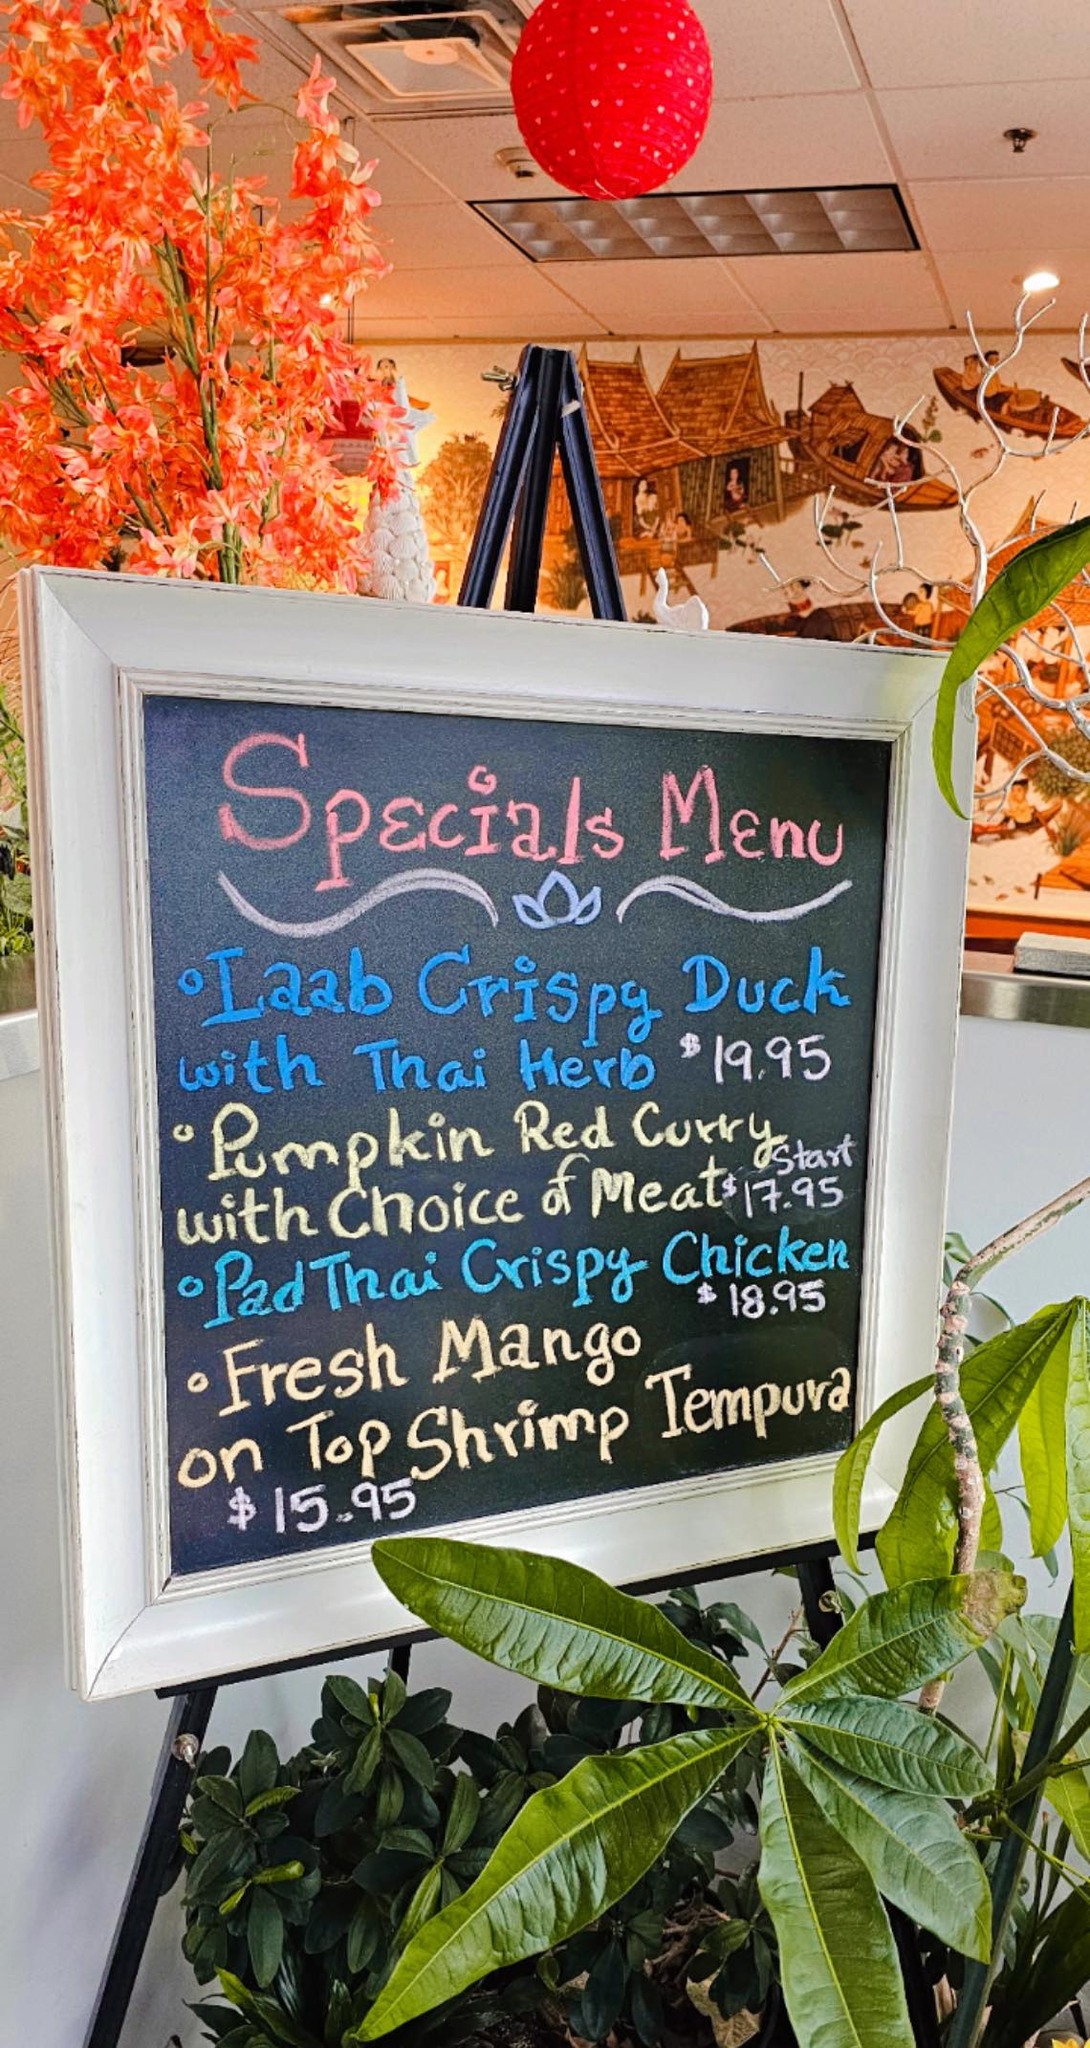 Specials Menu
• Laab Crispy Duck
with Thai Herb $19.95
• Pumpkin Red Curry
Start
with Choice of Meat $17.95
• Pad Thai Crispy Chicken
$18.95
• Fresh Mango
on Top Shrimp Tempura
$15.95